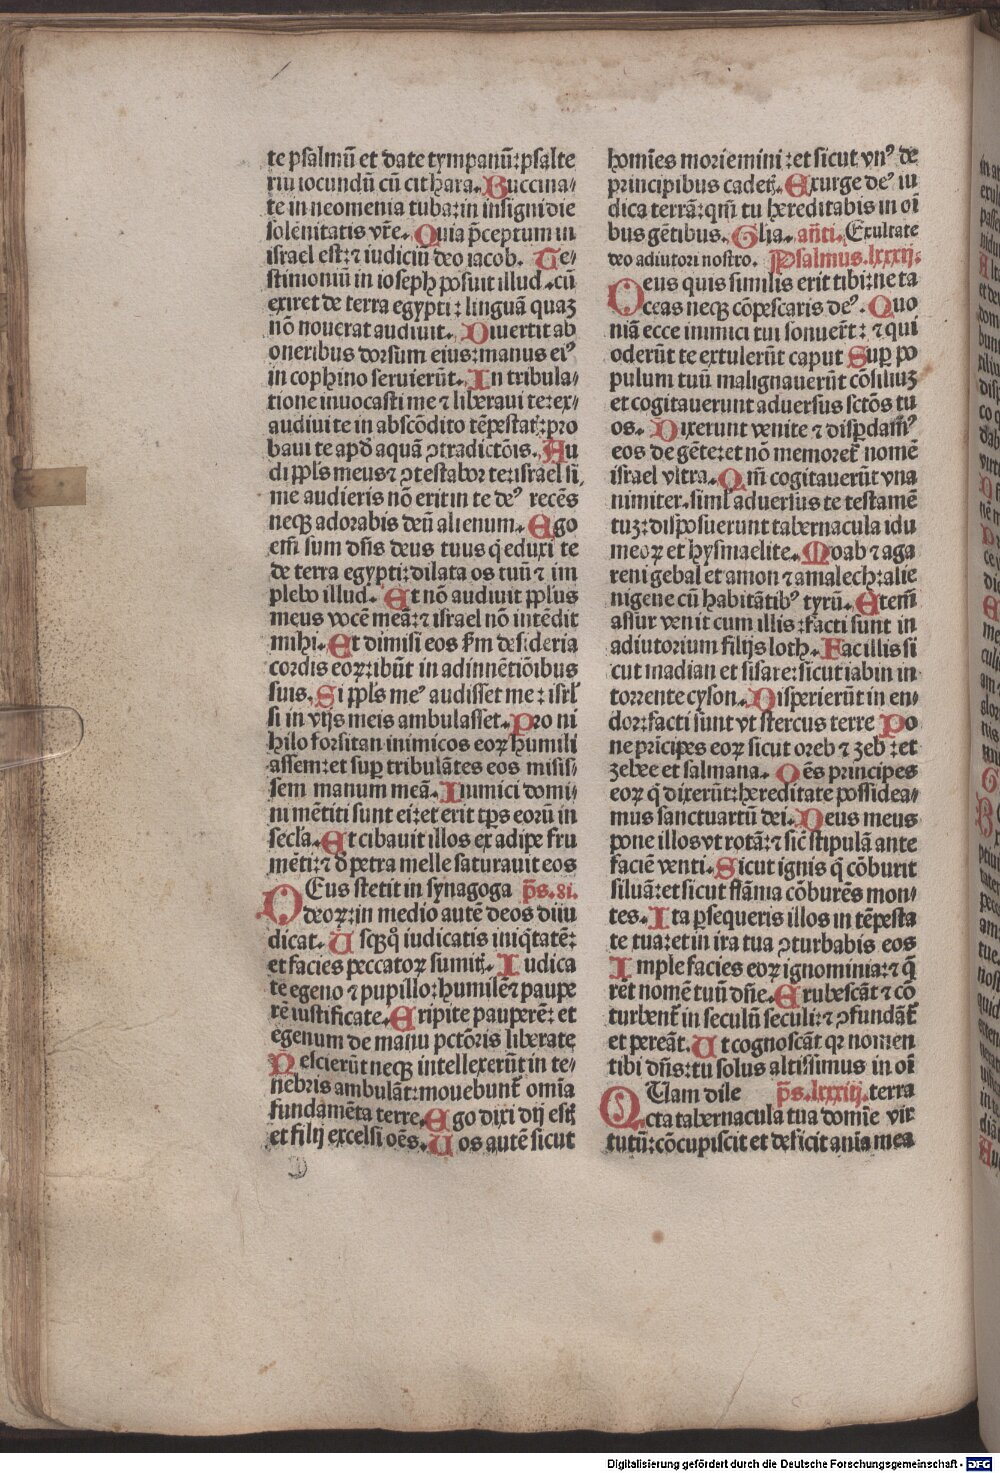 te psalmū et date tympanū: psalte
riū iocundū cū cithara. Buccina/
te in neomenia tuba: in insigni die
solēnitatis vr̄e. Quia p̄ceptum in
israel est: ⁊ iudiciū deo iacob. Te/
stimoniū in ioseph posuit illud. cū
exiret de terra egypti: linguā quaʒ
nō nouerat audiuit. Diuertit ab
oneribus dorsum eius: manus eiꝰ
in cophino seruierūt. In tribula/
tione inuocasti me ⁊ liberaui te: ex/
audiui te in abscōdito tēpestat̄: pro
baui te apd̄ aquā ꝯtradictōis. Au
di ppl̄s meus ⁊ ꝯtestabor te: israel si
me audieris nō erit in te deꝰ recēs
neqꝫ adorabis deū alienum. Ego
em̄ sum dn̄s deus tuus q̇ eduxi te
de terra egypti: dilata os tuū ⁊ im
plebo illud. Et nō audiuit ppl̄us
meus vocē meā: ⁊ israel nō intēdit
mihi. Et dimisi eos ẜm desideria
cordis eoꝝ: ibūt in adinuētiōibus
suis. Si ppl̄s meꝰ audisset me: isrl̄
si in vijs meis ambulasset. Pro ni
hilo forsitan inimicos eoꝝ humili
assem: et suꝑ tribulātes eos misis/
sem manum meā. Inimici domi/
ni mētiti sunt ei: et erit tp̄s eorū in
secl̄a. Et cibauit illos ex adipe fru
mēti: ⁊ d̄ petra melle saturauit eos
DEus stetit in synagoga p̄s. 81.
deoꝝ: in medio autē deos diiu
dicat. Usqꝫq̇ iudicatis iniq̇tatē:
et facies peccatoꝝ sumit̄. Iudica
te egeno ⁊ pupillo: humilē ⁊ paupe
rē iustificate. Eripite pauperē: et
egenum de manu pctōris liberate
Nescierūt neqꝫ intellexerūt in te/
nebris ambulāt: mouebunt̄ omīa
fundamēta terre. Ego dixi dij est̄
et filij excelsi oēs. Uos autē sicut
homīes moriemini: et sicut vnꝰ de
principibus cadet̄. Exurge deꝰ iu
dica terrā: qm̄ tu hereditabis in oī
bus gētibus. Glia. an̄ti. Exultate
deo adiutori nostro. Psalmus. lxxxij.
Deus quis similis erit tibi: ne ta
ceas neqꝫ cōpescaris deꝰ. Quo
niā ecce inimici tui sonuer̄t: ⁊ qui
oderūt te extulerūt caput Suꝑ po
pulum tuū malignauerūt cōsiliuʒ
et cogitauerunt aduersus sctōs tu
os. Dixerunt venite ⁊ disꝑdamꝰ
eos de gēte: et nō memoret̄ nomē
israel vltra. Qm̄ cogitauerūt vna
nimiter. siml̄ aduersus te testamē
tuʒ: disposuerunt tabernacula idu
meoꝝ et hysmaelite. Moab ⁊ aga
reni gebal et amon ⁊ amalech: alie
nigene cū habitātibꝰ tyrū. Etem̄
assur venit cum illis: facti sunt in
adiutorium filijs loth. Fac illis si
cut madian et sisare: sicut iabin in
torrente cyson. Disperierūt in en/
dor: facti sunt vt stercus terre Po
ne prīcipes eoꝝ sicut oreb ⁊ zeb: et
zebee et salmana. Oēs principes
eoꝝ q̇ dixerūt: hereditate possidea/
mus sanctuariū dei. Deus meus
pone illos vt rotā: ⁊ sic̄ stipulā ante
faciē venti. Sicut ignis q̇ cōburit
siluā: et sicut flāma cōburēs mon/
tes. Ita ꝑsequeris illos in tēpesta
te tua: et in ira tua ꝯturbabis eos
Imple facies eoꝝ ignominia: ⁊ q̄
rēt nomē tuū dn̄e. Erubescāt ⁊ cō
turbent̄ in seculū seculi: ⁊ ꝯfundāt̄
et pereāt. Ut cognoscāt qꝛ nomen
tibi dn̄s: tu solus altissimus in oī
QUam dile p̄s. lxxxiij. terra
cta tabernacula tua domīe vir
tutū: cōcupiscit et deficit anīa mea
Digitalisierung gefördert durch die Deutsche Forschungsgemeinschaft - DFG